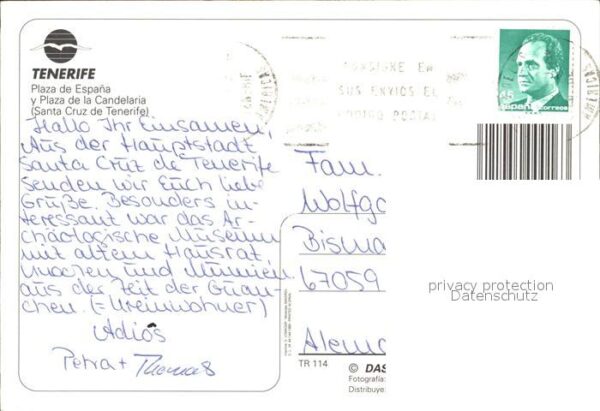 TENERIFE
Plaza de España
y Plaza de la Candelaria
(Santa Cruz de Tenerife)
Hallo Ihr Einsamen,
Aus der Hauptstadt
Santa Cruz de Tenerife
senden wir Euch liebe
Grüße. Besonders in-
teressant war das Ar-
chäologische Museum
mit altem Hausrat,
Knochen und Mumien
aus der Zeit der Guan-
chen. (= Ureinwohner)
Adiós
Petra + Thomas
CONSIGNE EN
SUS ENVIOS EL
CODIGO POSTAL
45
España correos
Fam.
Wolfga
Bisma
67059
Alema
TR 114
© DAS
Fotografía:
Distribuye:
privacy protection
Datenschutz